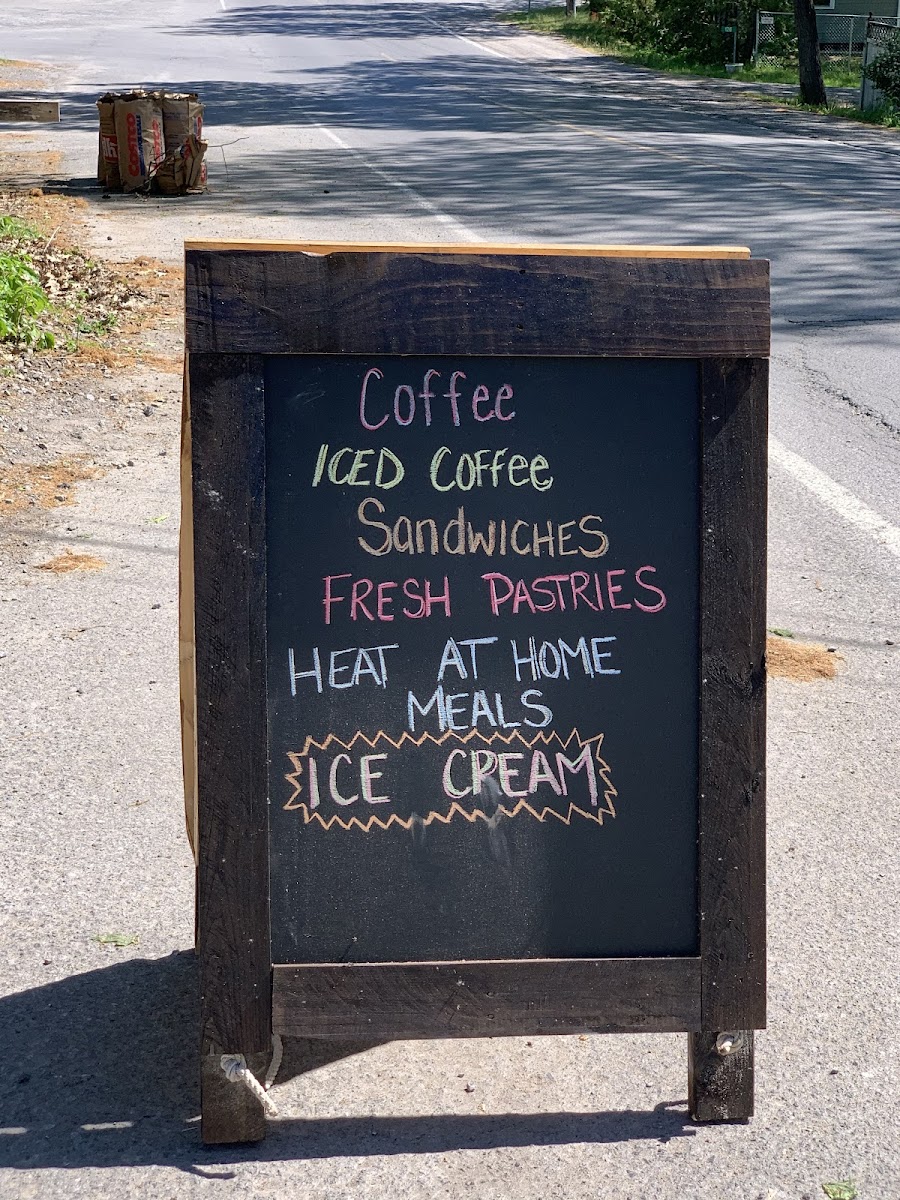 COSTCO
Coffee
ICED Coffee
SandWICHES
FRESH PASTRIES
HEAT AT HOME
MEALS
ICE CREAM